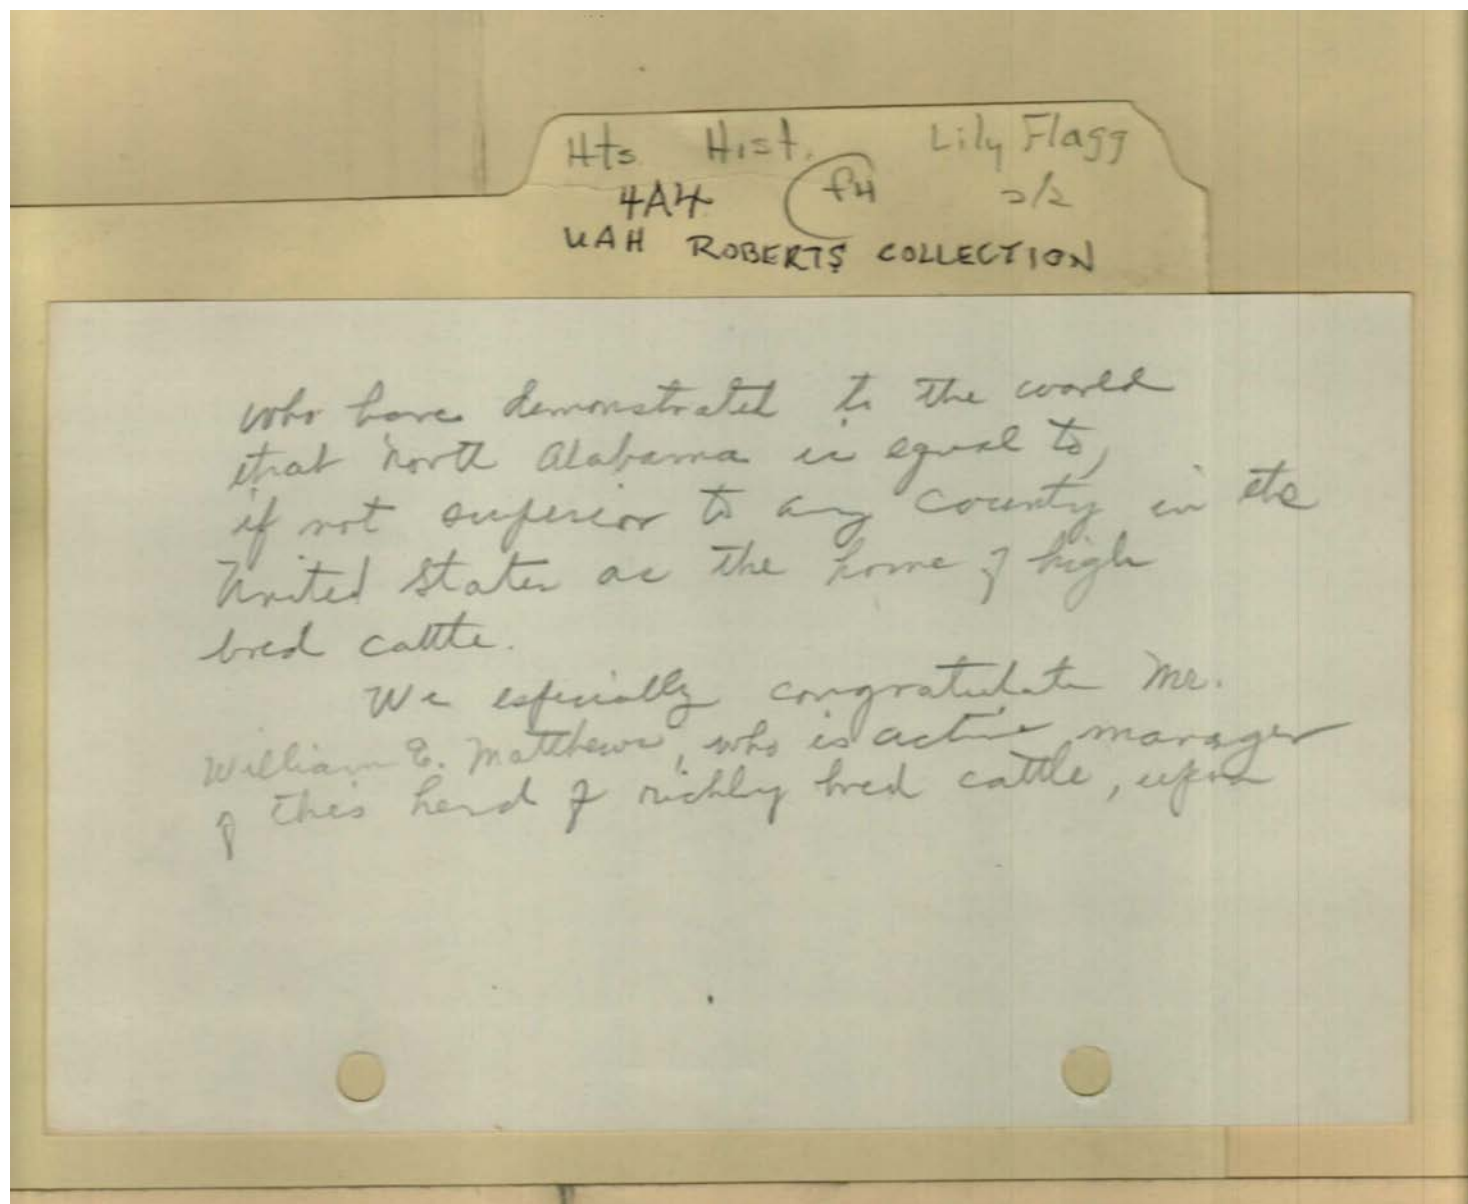 Hts Hist. Lily Flagg
4A4 f4 2/2
UAH ROBERTS COLLECTION
who have demonstrated to the world
that North Alabama is equal to,
if not superior to any county in the
United States as the home of high
bred cattle.
We especially congratulate Mr.
William E. Matthews, who is active manager
of this herd of richly bred cattle, upon